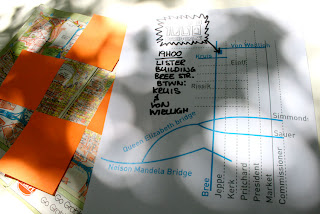 AHOO
LISTER
BUILDING
BREE STR.
BTWN:
KRUIS
&
VON
WIELLIGH
Von Wielligh
Kruis
Eloff
Rissik
Simmonds
Sauer
Queen Elizabeth bridge
Nelson Mandela Bridge
Bree
Jeppe
Kerk
Pritchard
President
Market
Commissioner
Go Gre